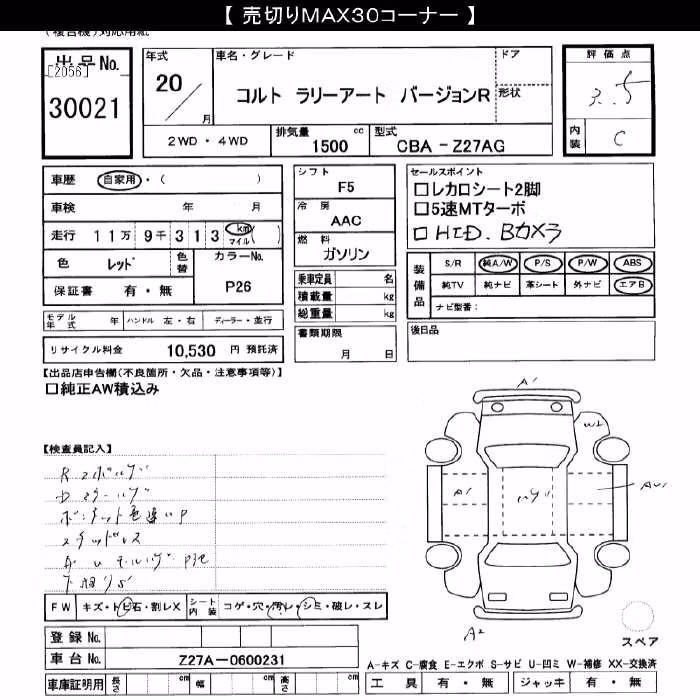 【 売切りMAX30コーナー 】
(複合機)対応用紙
出品No.
[2056]
30021
年式
20/
月
車名・グレード
コルト ラリーアート バージョンR
ドア
形状
2WD・4WD
排気量
1500 cc
型式
CBA-Z27AG
評価点
3.5
内装
C
車歴 自家用・( )
車検 年 月
走行 11万 9千 3 1 3 km マイル ( )
色 レッド 色替
カラーNo.
P26
保証書 有・無
モデル年式 年 ハンドル 左・右 ディーラー・並行
リサイクル料金 10,530 円 預託済
シフト
F5
冷房
AAC
燃料
ガソリン
乗車定員 名
積載量 kg
総重量 kg
書類期限
月 日
セールスポイント
□レカロシート2脚
□5速MTターボ
□HID.Bカメラ
装備品
S/R 純A/W P/S P/W ABS
純TV 純ナビ 革シート 外ナビ エアB
ナビ型番:
後日品
【出品店申告欄(不良箇所・欠品・注意事項等)】
□純正AW積込み
【検査員記入】
A1
W2
A1
AU1
A2
スペア
FW キズ・トビ石・割レX
シート内装 コゲ・穴・汚レ・シミ・破レ・スレ
登録No.
車台No. Z27A-0600231
車庫証明用 長さ cm 幅 cm 高さ cm
A-キズ C-腐食 E-エクボ S-サビ U-凹ミ W-補修 XX-交換済
工具 有・無 ジャッキ 有・無